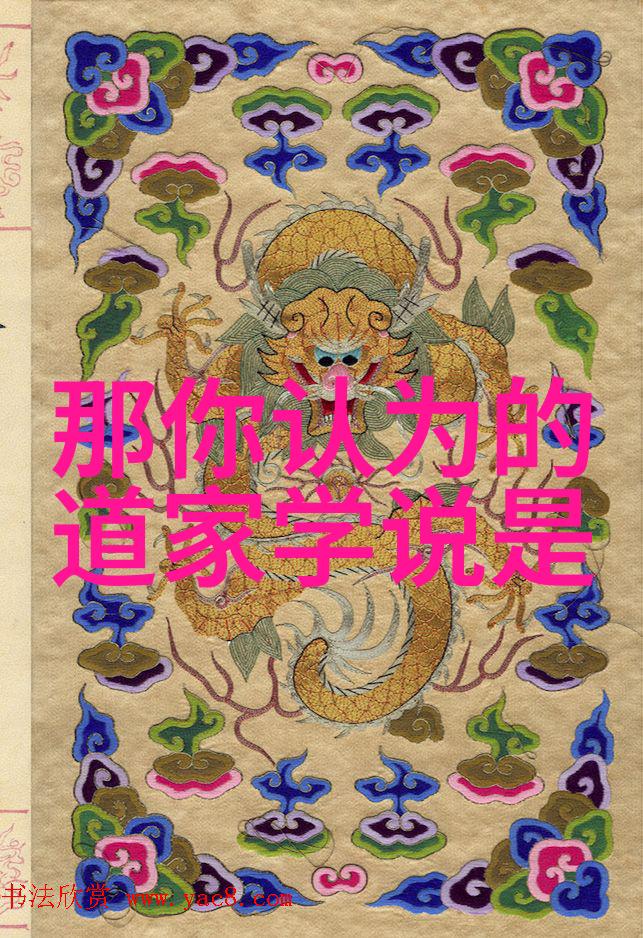 那你认为的
道家学说是
书法欣赏 www.yac8.com